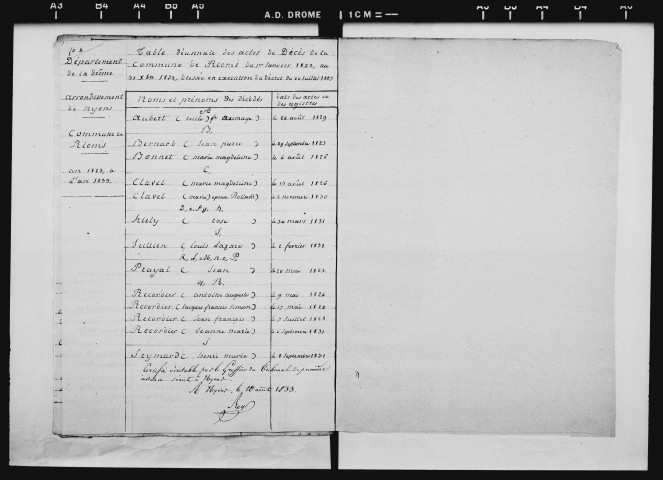 A3 B4 A4 B5 A5 A.D. DROME 1CM = A5 B5 A4 B4 A3
Département
de la drôme
arrondissement
de nyons
Commune de
Rioms
an 1823, a
L'an 1833.
Table décennale des actes de Décès de la
Commune de Rioms du 1er janvier 1823, au
31 Xbre 1832, dressée en exécution du décret du 20 juillet 1807
Noms et prénoms des décédés
date des actes
des registres
A
Aubert ( ) le 20 août 1829
B,
Bernard ( Jean pierre ) le 29 septembre 1823
Bonnet ( marie magdeleine ) le 6 août 1826
C,
Clavel ( marie magdeleine ) le 13 août 1826
Clavel ( marie) epouse le 2 1830
D, e, f, g, h,
( rose ) le 30 mars 1831
J,
Jullien ( Louis Lazare ) le 2 fevrier 1832
K, L, M, n, o, P
( Jean ) le 28 mai 1823
q, R,
Recordier ( antoine auguste ) le 9 mai 1824
Recordier ( Jacques francois simeon ) le 17 mai 1828
Recordier ( Jean françois ) le 7 juillet 1828
Recordier ( Jeanne marie ) le 2 septembre 1831
S
Seymard ( henri marie ) le 8 septembre 1831
Certifié véritable par le Greffier du tribunal de première
instance séant à Nyons.
A Nyons, le 10 août 1833.